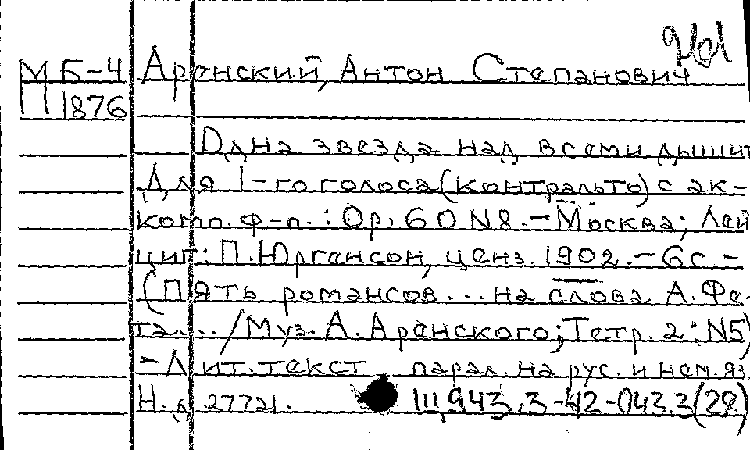 МБ-4 Аренский, Антон Степанович
П 1876
Одна звезда над всеми дышит
Для 1-го голоса (контральто) с ак-
комп. ф-п.: Op. 60 N8. - Москва; Лей
циг: П. Юргенсон, ценз. 1902. - 6с. -
(Пять романсов... на слова А. Фе-
та... / Муз. А. Аренского; Тетр. 2: N5)
- Лит. текст парал. на рус. и нем. яз.
Н. д. 27721. 111,943,3-42-043.3(28)